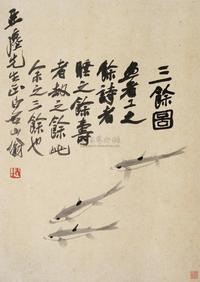 三餘圖
畫者工之
餘詩者
睡之餘壽
者劫之餘此
余之三餘也
亞塵先生正白石山翁